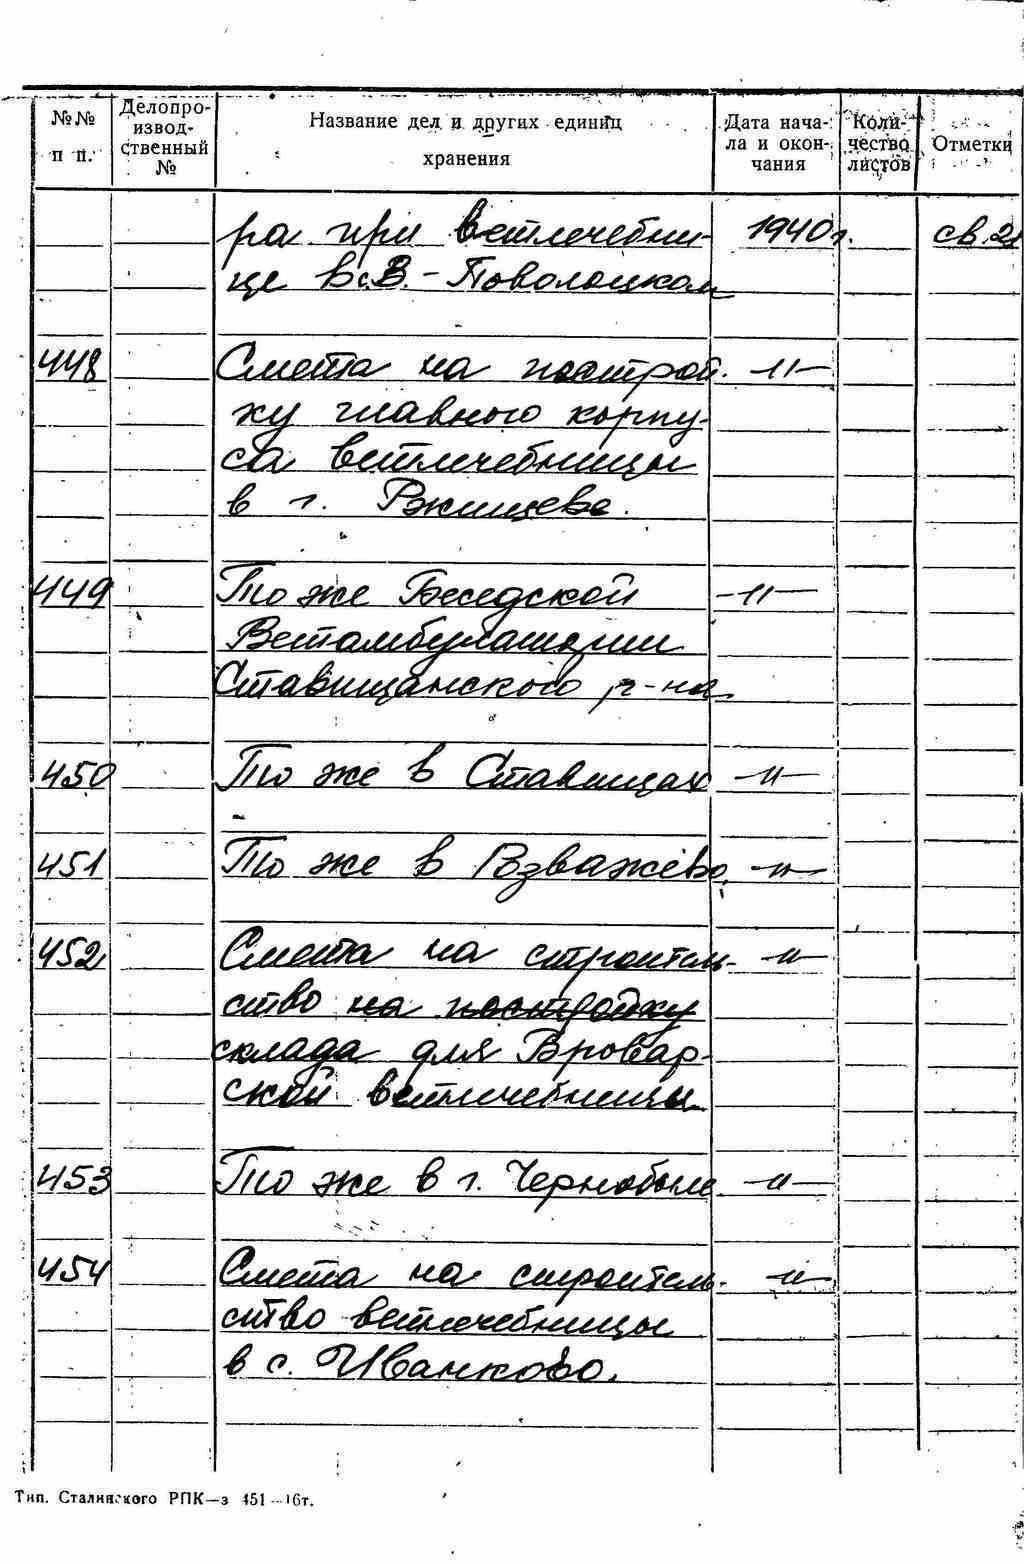 №№ п п. Делопро-изводственный № Название дел и других единиц хранения Дата начала и окончания Количество листов Отметки
ра при ветлечебни- 1940г. св.21
це в с. В.-Половецком
448 Смета на построй- -"-
ку главного корпу-
са ветлечебницы
в г. Ржищеве.
449 То же Беседской -"-
Ветамбулатории
Ставищанского р-на
450 То же в Ставищах -"-
451 То же в Розважево, -"-
452 Смета на строитель- -"-
ство на постройку
склада для Бровар-
ской ветлечебницы
453 То же в г. Чернобыле -"-
454 Смета на строитель- -"-
ство ветлечебницы
в с. Иванково.
Тип. Сталинского РПК—з 451—16т.